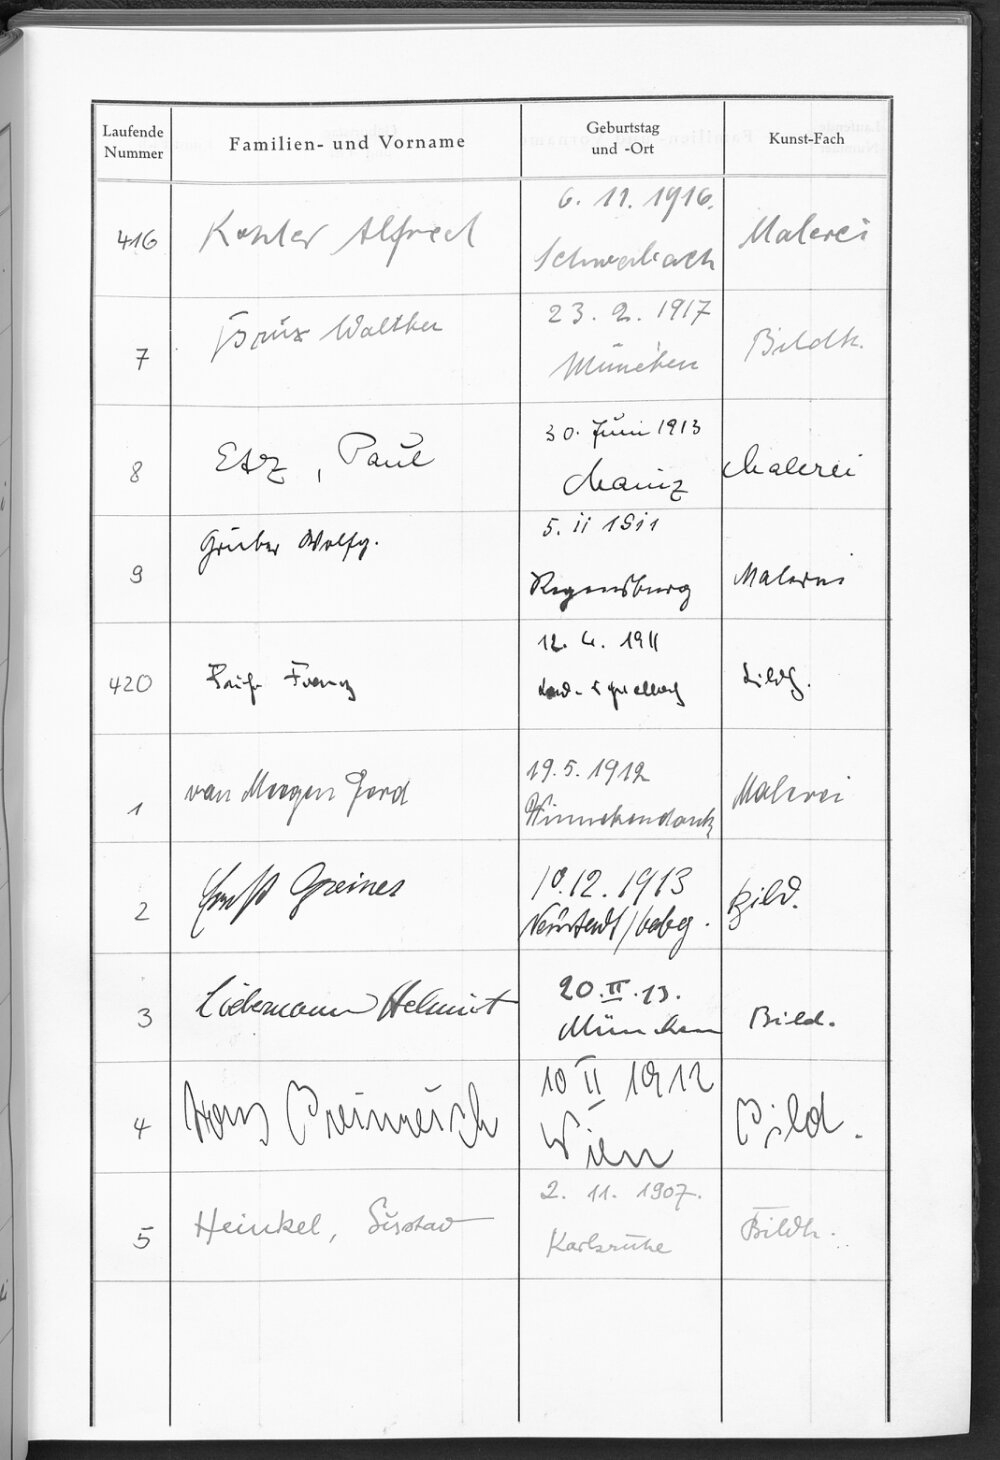 Laufende
Nummer
Familien- und Vorname
Geburtstag
und -Ort
Kunst-Fach
6. 11. 1916.
416 Kohler Alfred Malerei
23. 2. 1917
7 Walther Bildh.
München
30. Juni 1913
8 Etz, Paul Malerei
Mainz
5. II 1911
9 Gruber Wolfg. Malerei
Regensburg
12. 4. 1911
420 Franz Bildh.
19. 5. 1912
1 van Megen Gerd Malerei
Winnekendonk
10. 12. 1913
2 Ernst Greiner Bild.
Neustadt/
20. II. 13.
3 Liebermann Helmut Bild.
München
10 II 1912
4 Hans Bild.
Wien
2. 11. 1907.
5 Heinkel, Gustav Bildh.
Karlsruhe